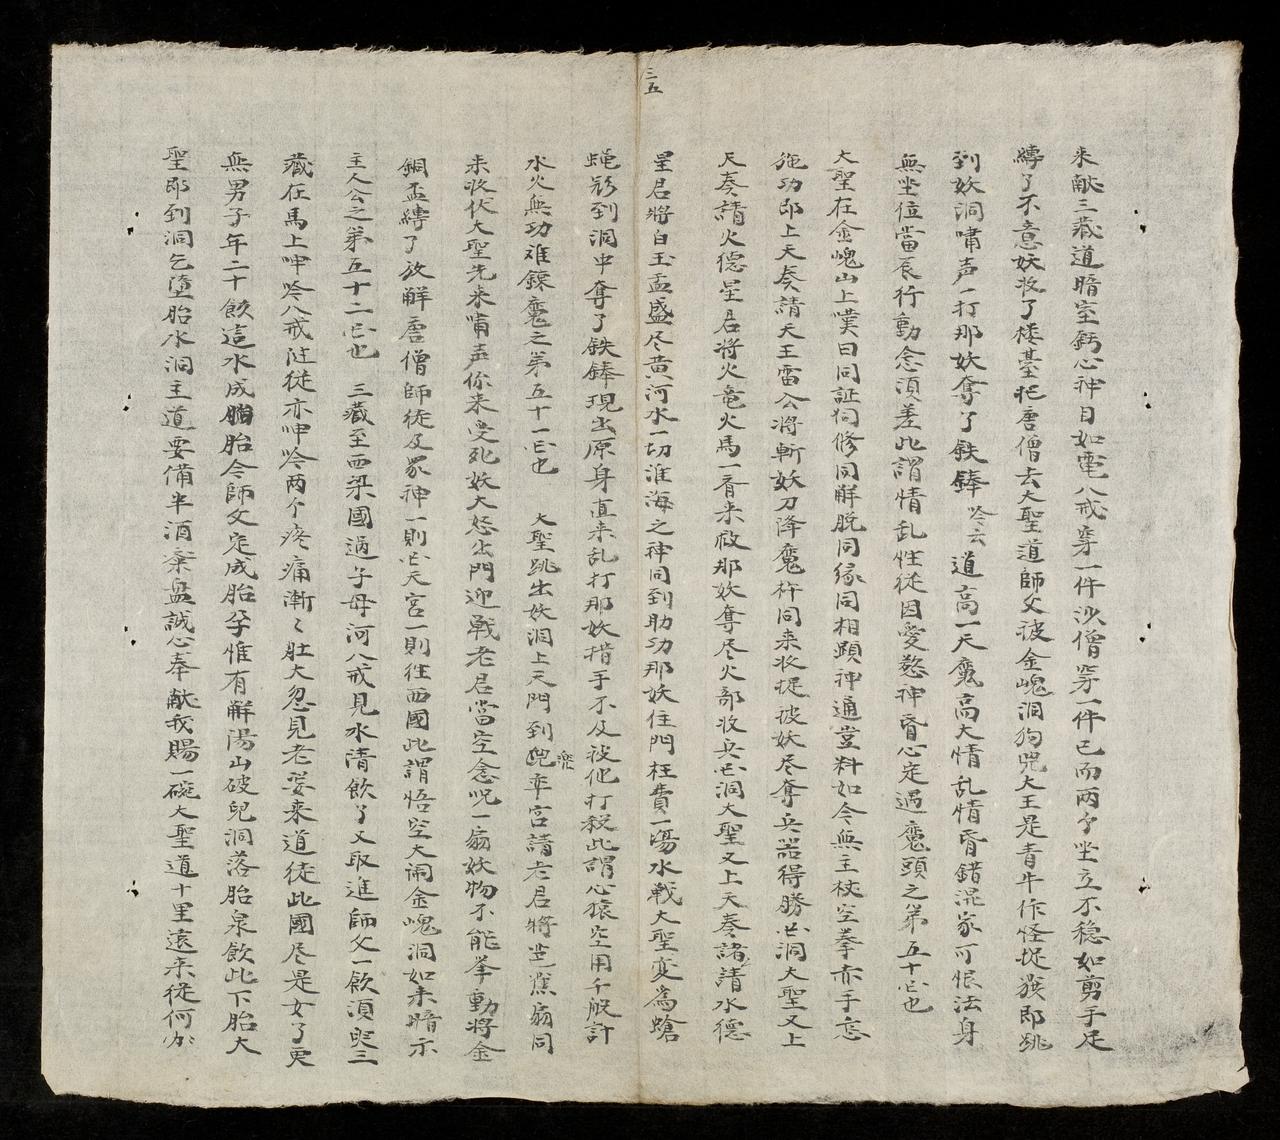 三五
来献三蔵道暗室䥽心神目如電八戒穿一件沙僧穿一件已而两个坐立不穏如剪手足
縳了不意妖收了楼䑓把唐僧去大聖道師父被金㟴洞狗兕大王是青牛作怪捉獲即跳
到妖洞嘯声一打那妖奪了鉄鋒吟云道高一天魔高大情乱情昏錯混家可恨法身
無坐位當辰行動念湏差此謂情乱性從因愛慾神昏心定遇魔頭之第五十回也
大聖在金㟴山上嘆曰同証同修同解脱同縁同相顕神通豈料如今無主杖空拳赤手忘
施功即上天奏請天王雷公將斬妖刀降魔杵同来收捉被妖尽奪兵器得勝回洞大聖又上
天奏請火徳星君將火竜火馬一斉来放那妖奪尽火部收兵回洞大聖又上天奏請水徳
星君將白玉盂盛尽黄河水一切淮海之神同到助功那妖住門枉費一湯水戦大聖変為蒼
蝇影到洞中奪了鉄鋒現出原身直来乱打那妖措手不及被他打殺此謂心猿空用千般計
水火無功难錬魔之第五十一回也 大聖跳出妖洞上天門到兜率宮請老君將芭蕉扇同
来收伏大聖先来嘯声你来受死妖大怒出門迎戦老君當空念呪一扇妖物不能挙動將金
銅盂縳了放觧唐僧師徒及眾神一則回天宮一則往西國此謂悟空大闹金㟴洞如来暗示
主人公之第五十二回也 三蔵至西梁國過子母河八戒見水清飲了又取進師父一飲湏臾三
蔵在馬上呻吟八戒徃從亦呻吟两个疼痛漸〻肚大忽見老婆来道徒此國尽是女了更
無男子年二十飲這水成胎胎今師父定成胎孕惟有解湯山破兒洞落胎泉飲此下胎大
聖即到洞乞墮胎水洞主道要備羊酒槃盘誠心奉献我賜一碗大聖道十里遠来從何办